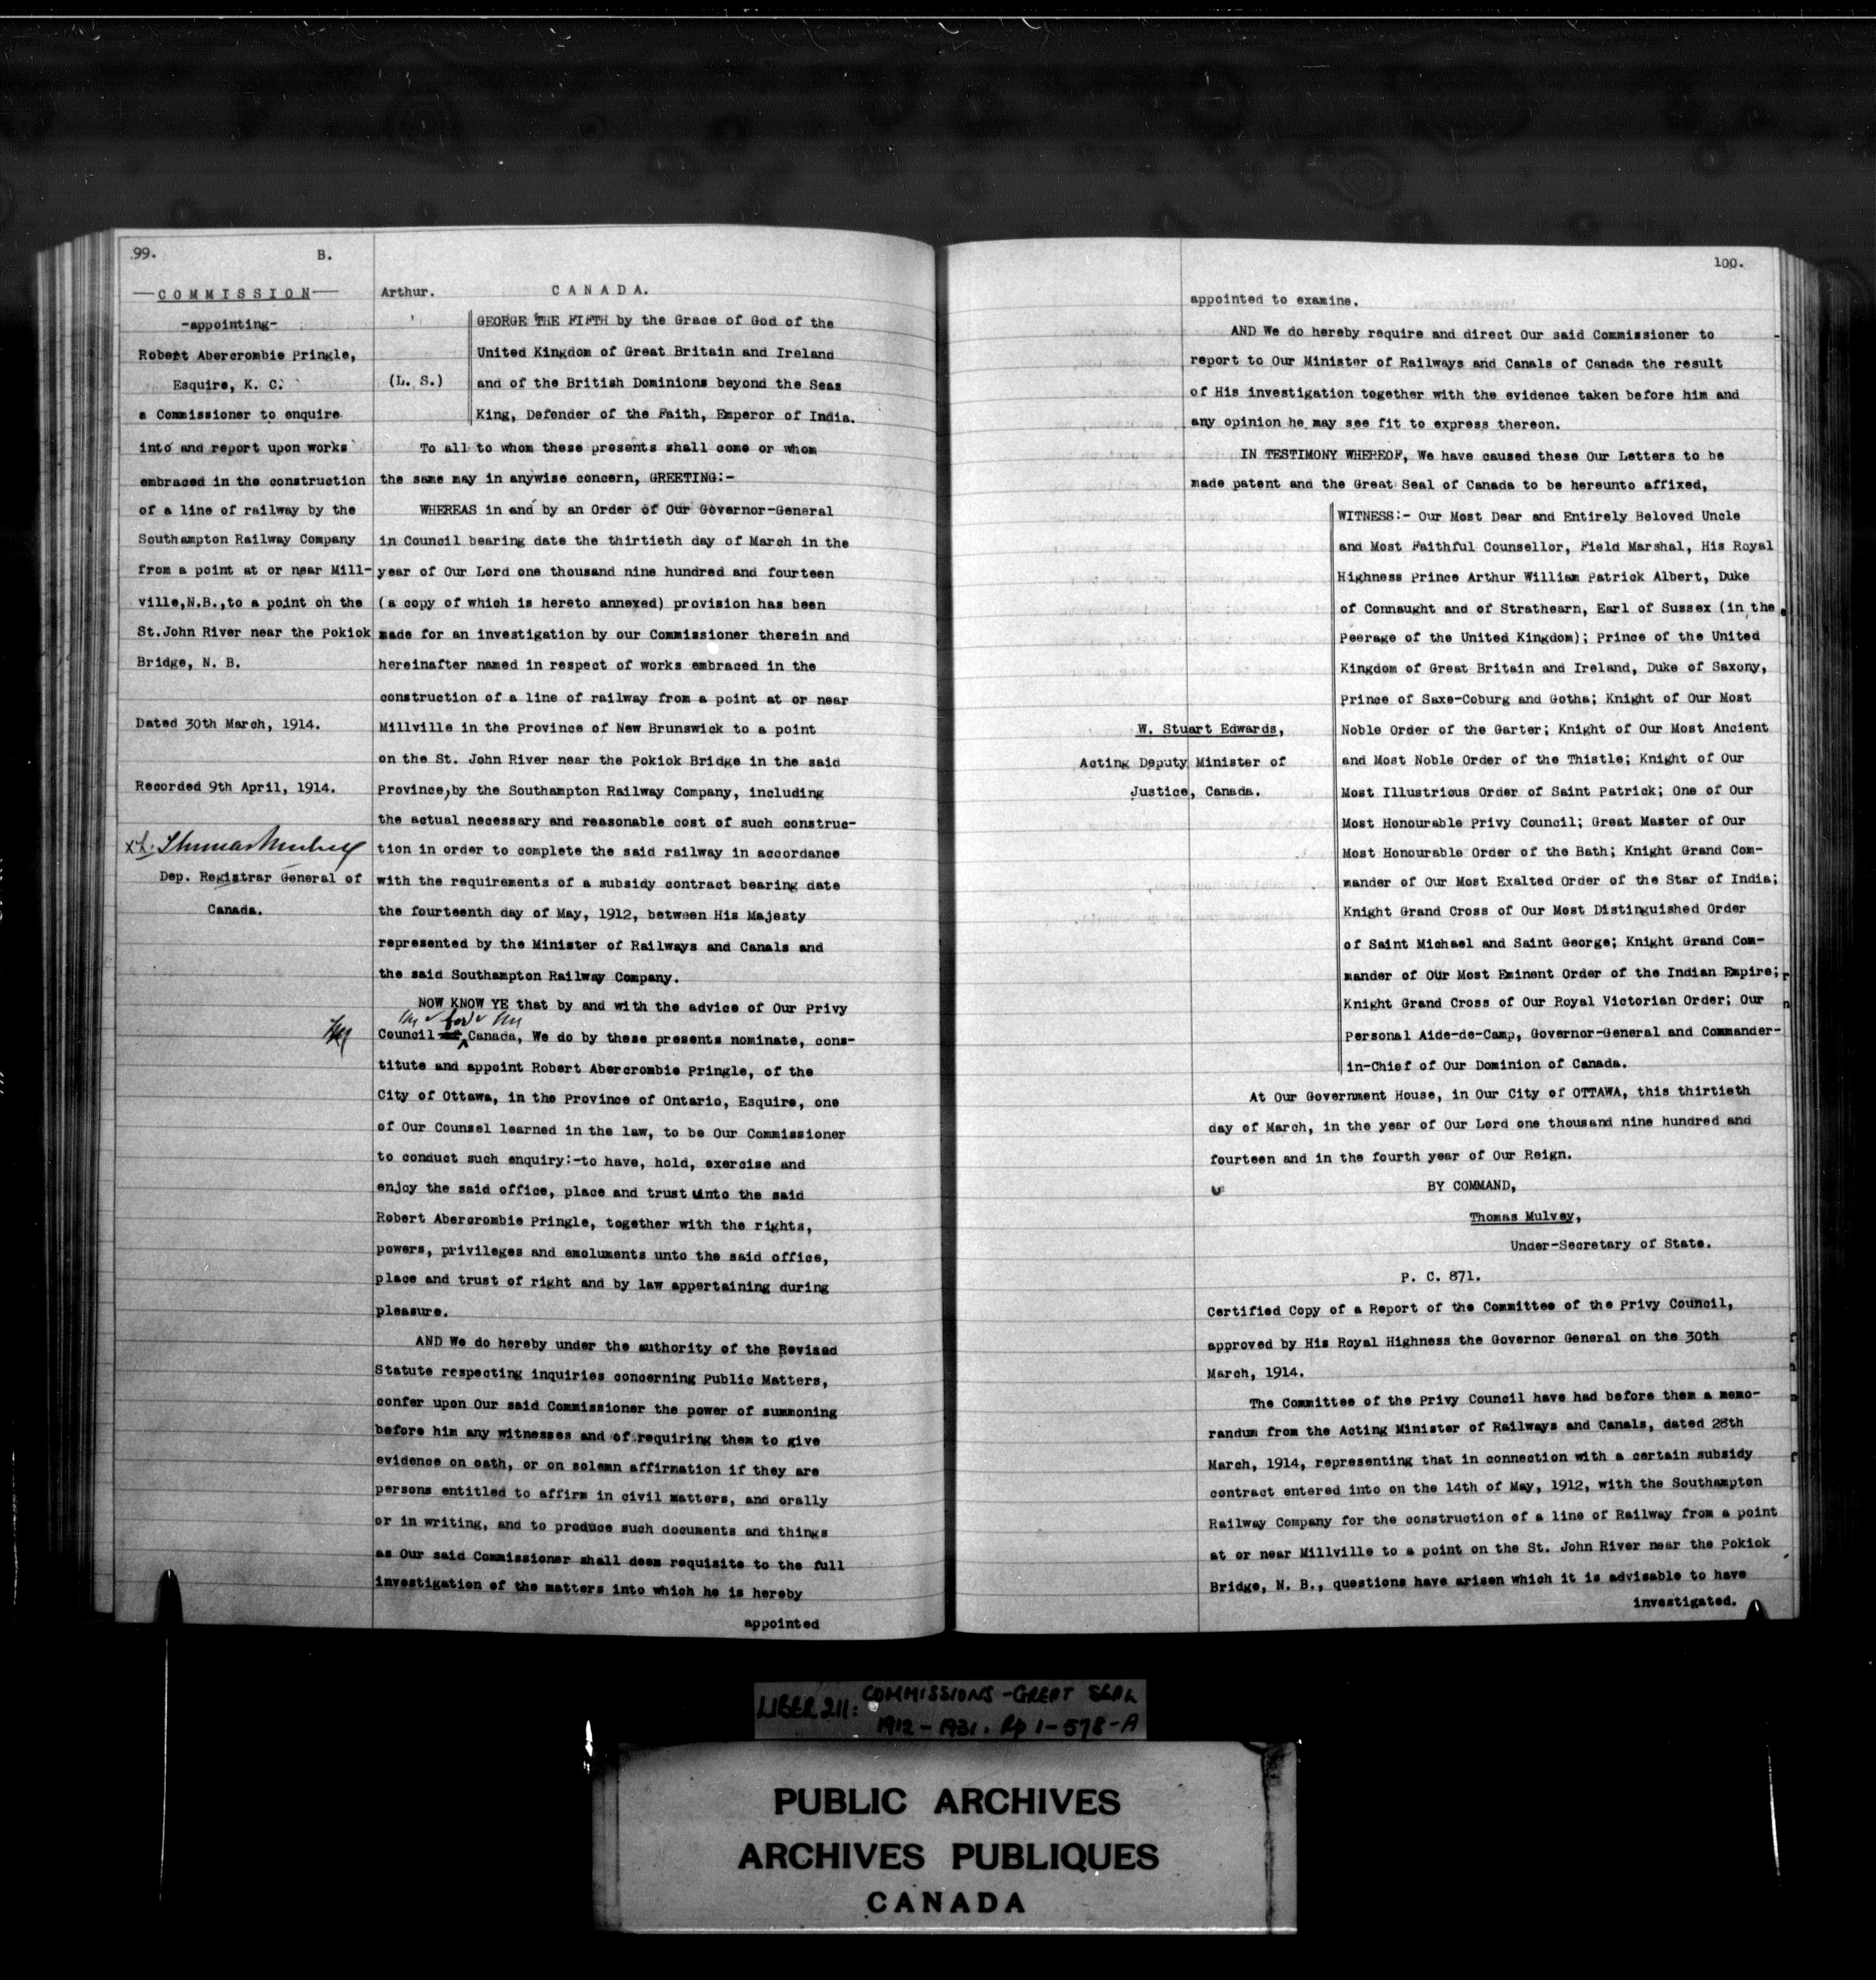 99.
B.
COMMISSION
-appointing-
Robert Abercrombie Pringle,
Esquire, K. C.
a Commissioner to enquire
into and report upon works
embraced in the construction
of a line of railway by the
Southampton Railway Company
from a point at or near Mill-
ville,N.B.,to a point on the
St.John River near the Pokiok
Bridge, N. B.
Dated 30th March, 1914.
Recorded 9th April, 1914.
Thomas Mulvey
Dep. Registrar General of
Canada.
Arthur.
CANADA.
(L. S.)
GEORGE THE FIFTH by the Grace of God of the
United Kingdom of Great Britain and Ireland
and of the British Dominions beyond the Seas
King, Defender of the Faith, Emperor of India.
To all to whom these presents shall come or whom
the same may in anywise concern, GREETING:-
WHEREAS in and by an Order of Our Governor-General
in Council bearing date the thirtieth day of March in the
year of Our Lord one thousand nine hundred and fourteen
(a copy of which is hereto annexed) provision has been
made for an investigation by our Commissioner therein and
hereinafter named in respect of works embraced in the
construction of a line of railway from a point at or near
Millville in the Province of New Brunswick to a point
on the St. John River near the Pokiok Bridge in the said
Province,by the Southampton Railway Company, including
the actual necessary and reasonable cost of such construc-
tion in order to complete the said railway in accordance
with the requirements of a subsidy contract bearing date
the fourteenth day of May, 1912, between His Majesty
represented by the Minister of Railways and Canals and
the said Southampton Railway Company.
NOW KNOW YE that by and with the advice of Our Privy
for
Council Canada, We do by these presents nominate, cons-
titute and appoint Robert Abercrombie Pringle, of the
City of Ottawa, in the Province of Ontario, Esquire, one
of Our Counsel learned in the law, to be Our Commissioner
to conduct such enquiry:-to have, hold, exercise and
enjoy the said office, place and trust unto the said
Robert Abercrombie Pringle, together with the rights,
powers, privileges and emoluments unto the said office,
place and trust of right and by law appertaining during
pleasure.
AND We do hereby under the authority of the Revised
Statute respecting inquiries concerning Public Matters,
confer upon Our said Commissioner the power of summoning
before him any witnesses and of requiring them to give
evidence on oath, or on solemn affirmation if they are
persons entitled to affirm in civil matters, and orally
or in writing, and to produce such documents and things
as Our said Commissioner shall deem requisite to the full
investigation of the matters into which he is hereby
appointed
100.
appointed to examine.
AND We do hereby require and direct Our said Commissioner to
report to Our Minister of Railways and Canals of Canada the result
of His investigation together with the evidence taken before him and
any opinion he may see fit to express thereon.
IN TESTIMONY WHEREOF, We have caused these Our Letters to be
made patent and the Great Seal of Canada to be hereunto affixed,
W. Stuart Edwards,
Acting Deputy Minister of
Justice, Canada.
WITNESS:- Our Most Dear and Entirely Beloved Uncle
and Most Faithful Counsellor, Field Marshal, His Royal
Highness Prince Arthur William Patrick Albert, Duke
of Connaught and of Strathearn, Earl of Sussex (in the
Peerage of the United Kingdom); Prince of the United
Kingdom of Great Britain and Ireland, Duke of Saxony,
Prince of Saxe-Coburg and Gotha; Knight of Our Most
Noble Order of the Garter; Knight of Our Most Ancient
and Most Noble Order of the Thistle; Knight of Our
Most Illustrious Order of Saint Patrick; One of Our
Most Honourable Privy Council; Great Master of Our
Most Honourable Order of the Bath; Knight Grand Com-
mander of Our Most Exalted Order of the Star of India;
Knight Grand Cross of Our Most Distinguished Order
of Saint Michael and Saint George; Knight Grand Com-
mander of Our Most Eminent Order of the Indian Empire;
Knight Grand Cross of Our Royal Victorian Order; Our
Personal Aide-de-Camp, Governor-General and Commander-
in-Chief of Our Dominion of Canada.
At Our Government House, in Our City of OTTAWA, this thirtieth
day of March, in the year of Our Lord one thousand nine hundred and
fourteen and in the fourth year of Our Reign.
BY COMMAND,
Thomas Mulvey,
Under-Secretary of State.
P. C. 871.
Certified Copy of a Report of the Committee of the Privy Council,
approved by His Royal Highness the Governor General on the 30th
March, 1914.
The Committee of the Privy Council have had before them a memo-
randum from the Acting Minister of Railways and Canals, dated 28th
March, 1914, representing that in connection with a certain subsidy
contract entered into on the 14th of May, 1912, with the Southampton
Railway Company for the construction of a line of Railway from a point
at or near Millville to a point on the St. John River near the Pokiok
Bridge, N. B., questions have arisen which it is advisable to have
investigated.
LIBER 211: COMMISSIONS - GREAT SEAL
1912 - 1931. Pp 1-578-A
PUBLIC ARCHIVES
ARCHIVES PUBLIQUES
CANADA